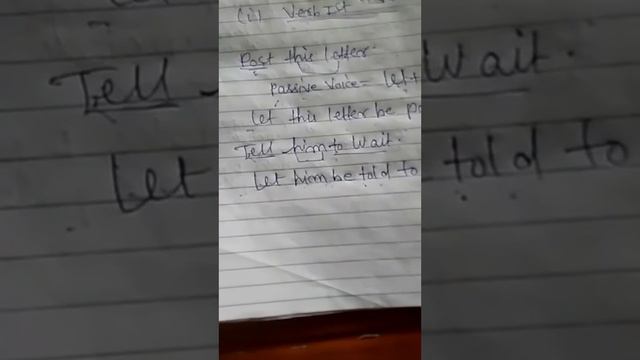 (i) Verb Ist
Post this letter.
Passive Voice - Let +
Let this letter be
Tell him to Wait.
Let him be told to
Tell Wait.
Let told to